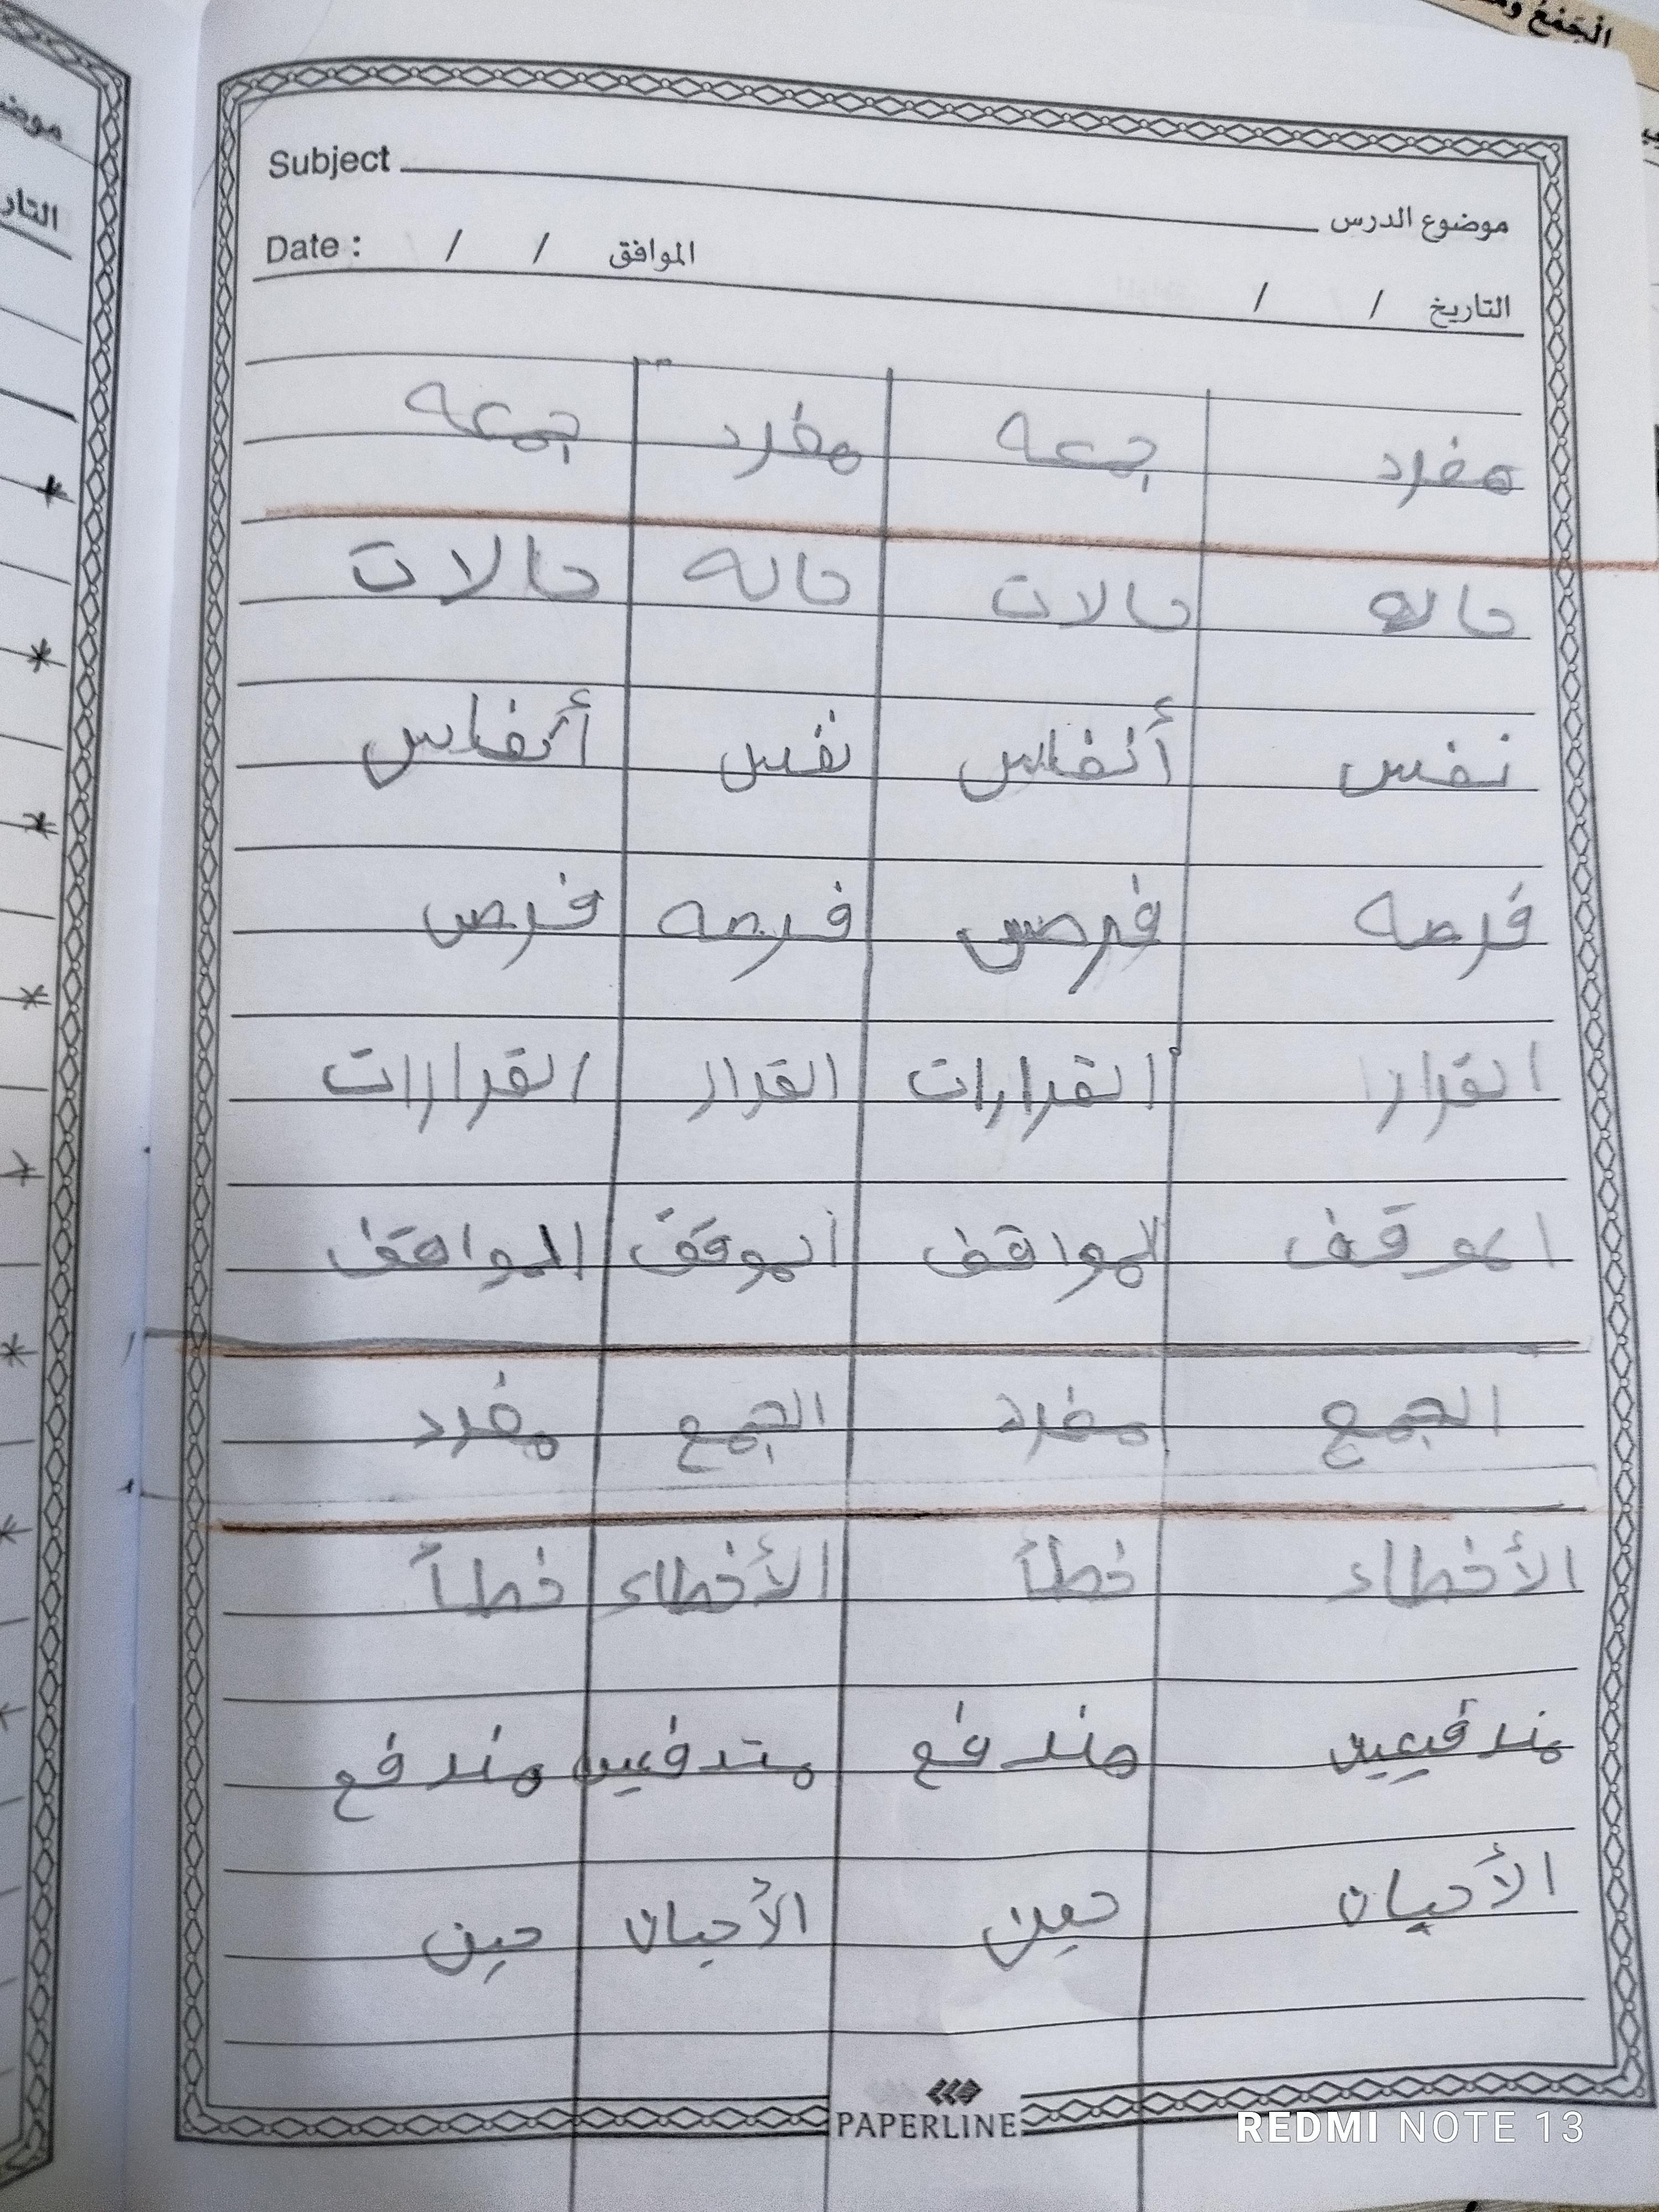 الجمع
موض
التار
Subject موضوع الدرس
Date : / / الموافق / / التاريخ
مفرد جمعه مفرد جمعه
حاله حالات حاله حالات
نفس أنفاس نفس أنفاس
فرصه فرص فرصه فرص
القرار القرارات القرار القرارات
الموقف المواقف الموقف المواقف
الجمع مفرد الجمع مفرد
الأخطاء خطأ الأخطاء خطأ
مندفيعين مندفع متدفعين مندفع
الأحيان حين الأحيان حين
PAPERLINE
REDMI NOTE 13